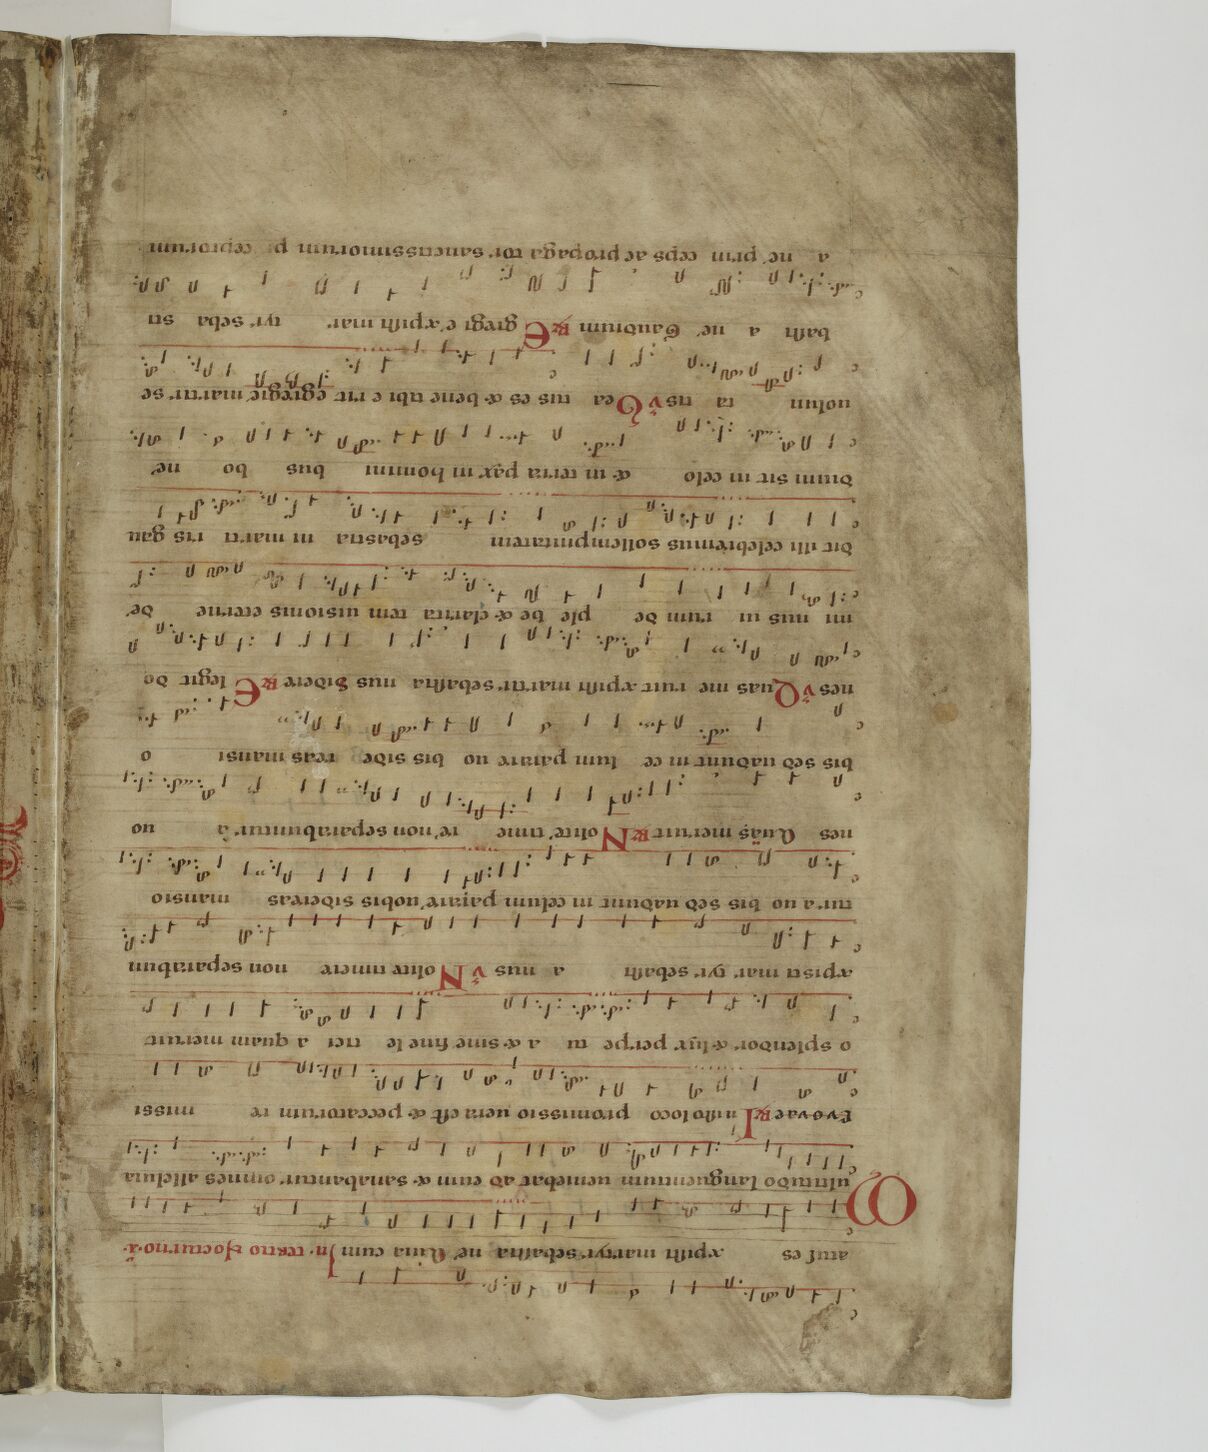 atus es xpisti martyr sebastia ne Quia cum In tercio Nocturno a
Multitudo languentium ueniebat ad eum & sanabantur omnes alleluia
Evovae R Isto loco promissio uera est & peccatorum re missi
o splendor & lux perpe tu a & sine fine le tici a quam meruit
xpisti mar tyr sebasti a nus V Nolite timere non separabun
tur a uo bis sed uadunt in celum parare uobis sidereas mansio
nes Quas meruit R Nolite time re non separabuntur a uo
bis sed uadunt in ce lum parare uo bis side reas mansi o
nes V Quas me ruit xpisti martir sebastia nus Sidere R E legit do
mi nus ui rum de ple be & clarita tem uisionis eterne de
dit illi celebremus sollempnitatem sebastia ni marti ris gau
dium sit in celo & in terra pax in homini bus bo ne
uolun ta tis V Gea tus es & bene tibi e rit egregie martir se
basti a ne Gaudium R E gregi e xpisti mar tyr seba sti
a ne prin ceps ac propaga tor sanctissimorum p ceptorum